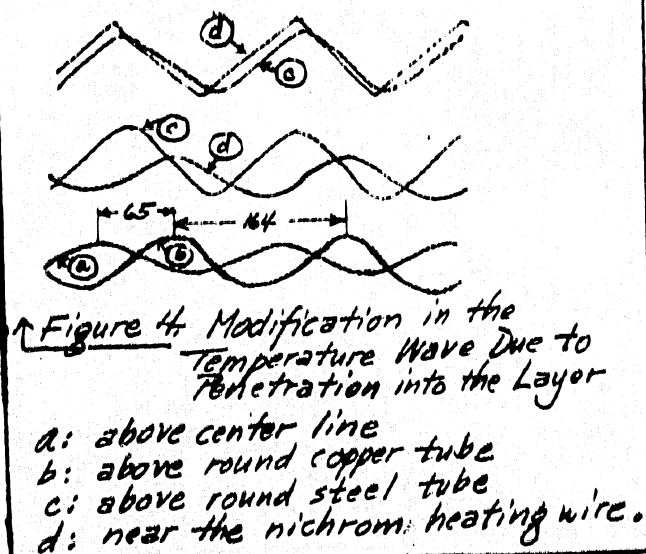 d
a
c
d
65 164
a b
Figure 4. Modification in the
Temperature Wave Due to
Penetration into the Layor
a: above center line
b: above round copper tube
c: above round steel tube
d: near the nichrom heating wire.